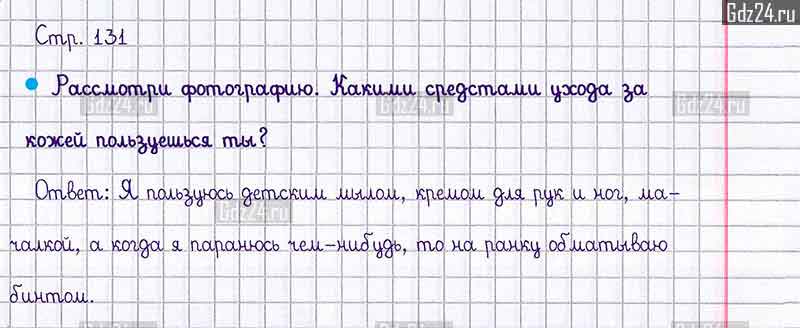 Gdz24.ru
Стр. 131
Рассмотри фотографию. Какими средстами ухода за
Gdz24.ru Gdz24.ru Gdz24.ru
кожей пользуешься ты?
Ответ: Я пользуюсь детским мылом, кремом для рук и ног, ма-
Gdz24.ru
чалкой, а когда я паранюсь чем-нибудь, то на ранку обматываю
бинтом.
Gdz24.ru Gdz24.ru Gdz24.ru